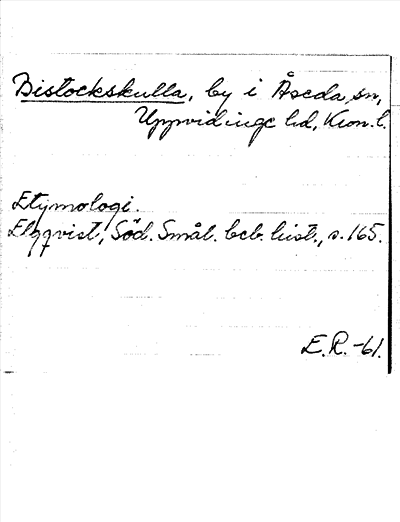 Bistockskulla, by i Åseda sn,
Uppvidinge hd, Kron. l.
Etymologi.
Elgqvist, Söd. Smål. beb. hist., s. 165.
E.R. -61.